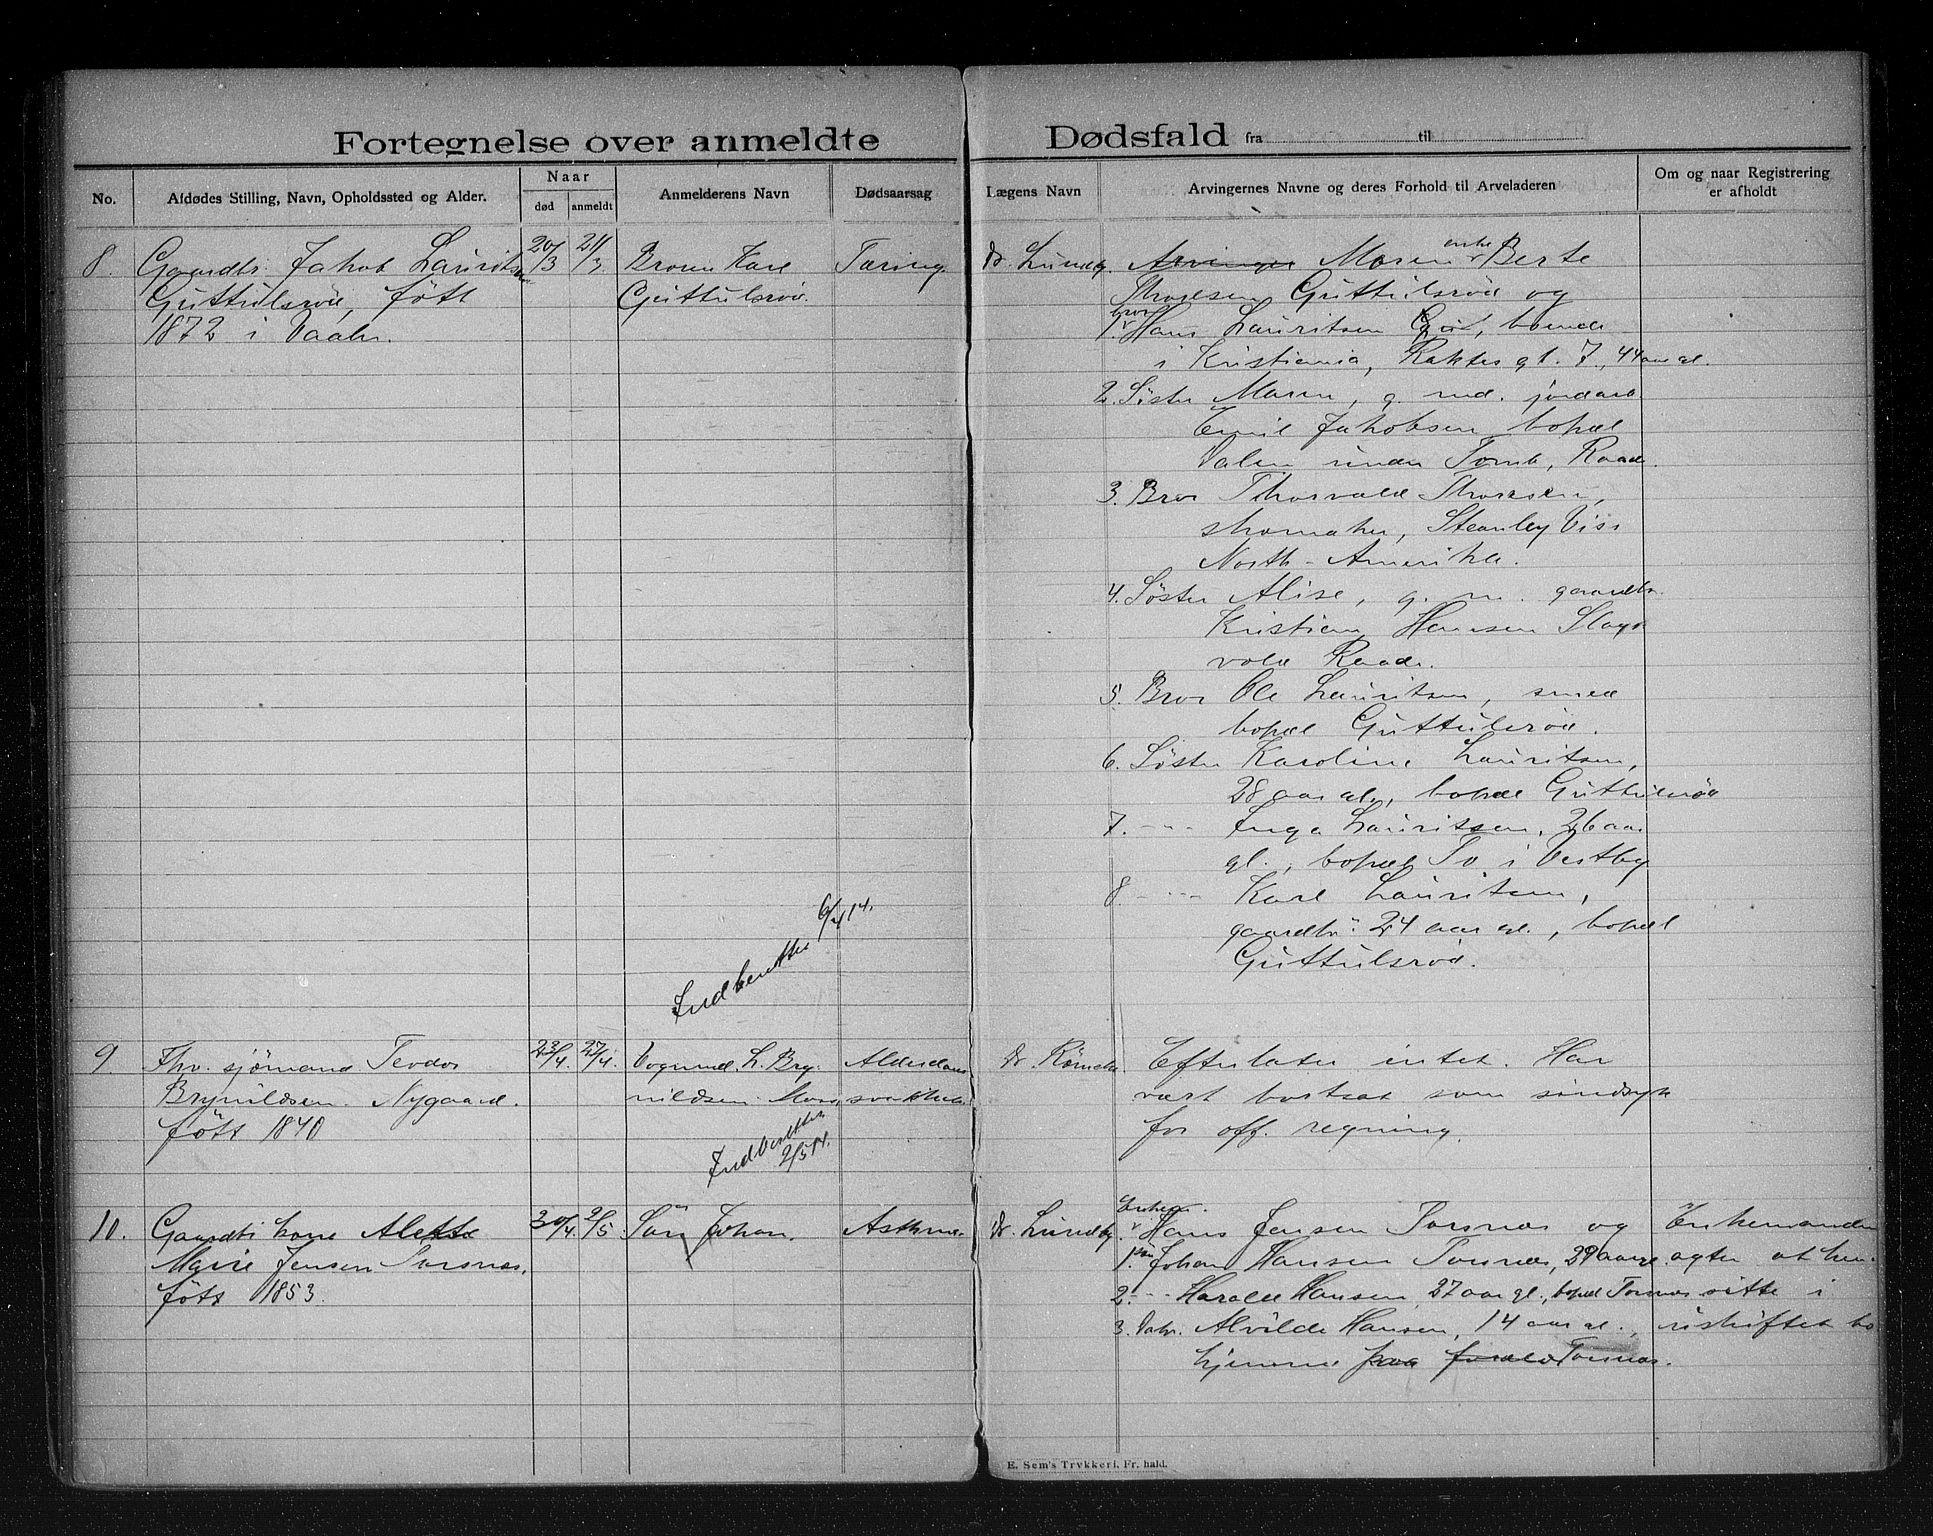 Fortegnelse over anmeldte
Dødsfald fra til
No.
Afdødes Stilling, Navn, Opholdssted og Alder.
Naar
død
anmeldt
Anmelderens Navn
Dødsaarsag
Lægens Navn
Arvingernes Navne og deres Forhold til Arveladeren
Om og naar Registrering
er afholdt
8. Gaardbr. Jakob Lauritsen
Guttulsrød, født
1872 i Vaaler.
20/3
21/3
Broren Karl
Guttulsrød.
Tæring.
Dr. Lundby.
Arvinger Moren enke Berte
Guttulsrød og
1. bror Hans Lauritsen boende
i Kristiania, gt. 7, 44 aar gl.
2. Søster Maren, g. med jordarb.
Emil Jakobsen bopæl
Dalen under Tomb, Raade.
3. Bror Thorvald
skomaker, Stanley Viss
North-Amerika.
4. Søster Alise, g. m. gaardbr.
Kristian Hansen Slags
vold Raade.
5. Bror Ole Lauritsen, smed
bopæl Guttulsrød.
6. Søster Karoline Lauritsen,
28 aar gl., bopæl Guttulsrød
7. -"- Inga Lauritsen, 26 aar
gl., bopæl i Vestby
8. -"- Karl Lauritsen,
gaardbr. 24 aar gl., bopæl
Guttulsrød.
Indberettet 6/4 14.
9. Fhv. sjømand Teodor
Brynildsen Nygaard.
født 1840
23/4.
27/4.
L. Bry-
nildsen Moss
Alderdoms
svakhet.
Indberettet
2/5 14.
Dr. Rømcke.
Efterlater intet. Har
vært bortsat som sindssyk
for off. regning.
10. Gaardbr. kone Alette
Marie Jensen Torsnæs,
født 1853.
30/4.
2/5.
Søn Johan.
Asthma.
Dr. Lundby
Enkem.
Hans Jensen Torsnæs og
1. søn Johan Hansen Torsnæs, 29 aar gl.
2. -"- Harald Hansen, 27 aar gl., bopæl Torsnæs
3. Datr. Alvilde Hansen, 14 aar gl.,
hjemme paa Torsnæs.
Enkemanden
agter at hen-
sitte i
uskiftet bo
E. Sem's Trykkeri, Fr. hald.